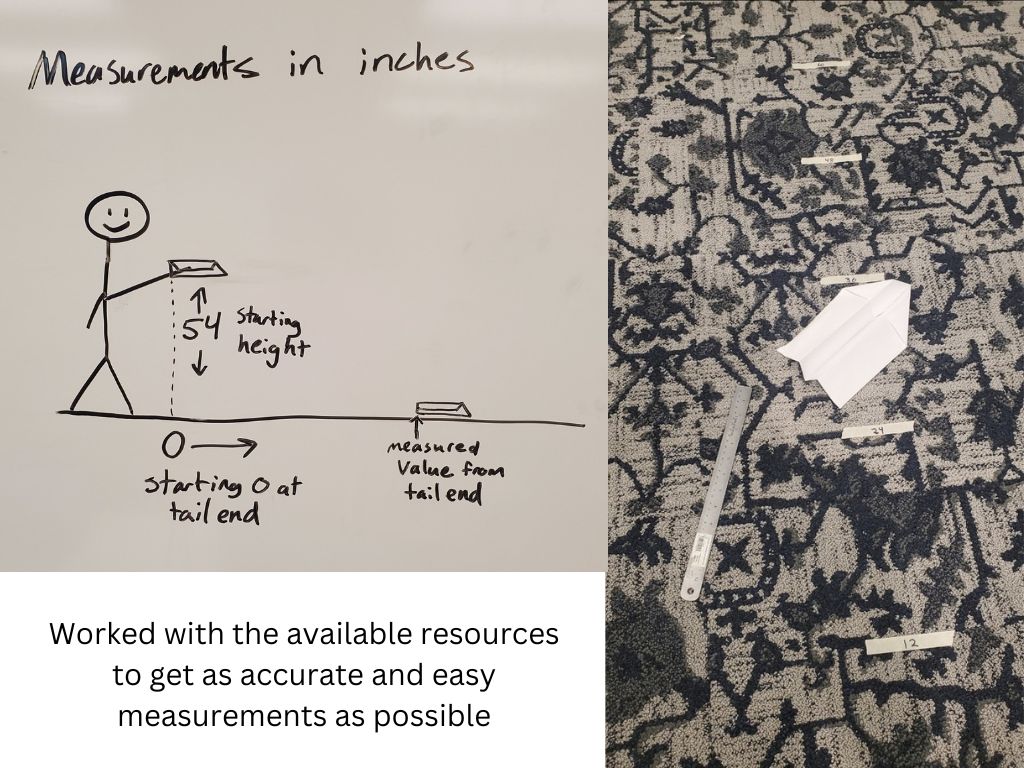 Measurements in inches
54
starting
height
0
starting 0 at
tail end
measured
value from
tail end
Worked with the available resources
to get as accurate and easy
measurements as possible
48
36
24
12